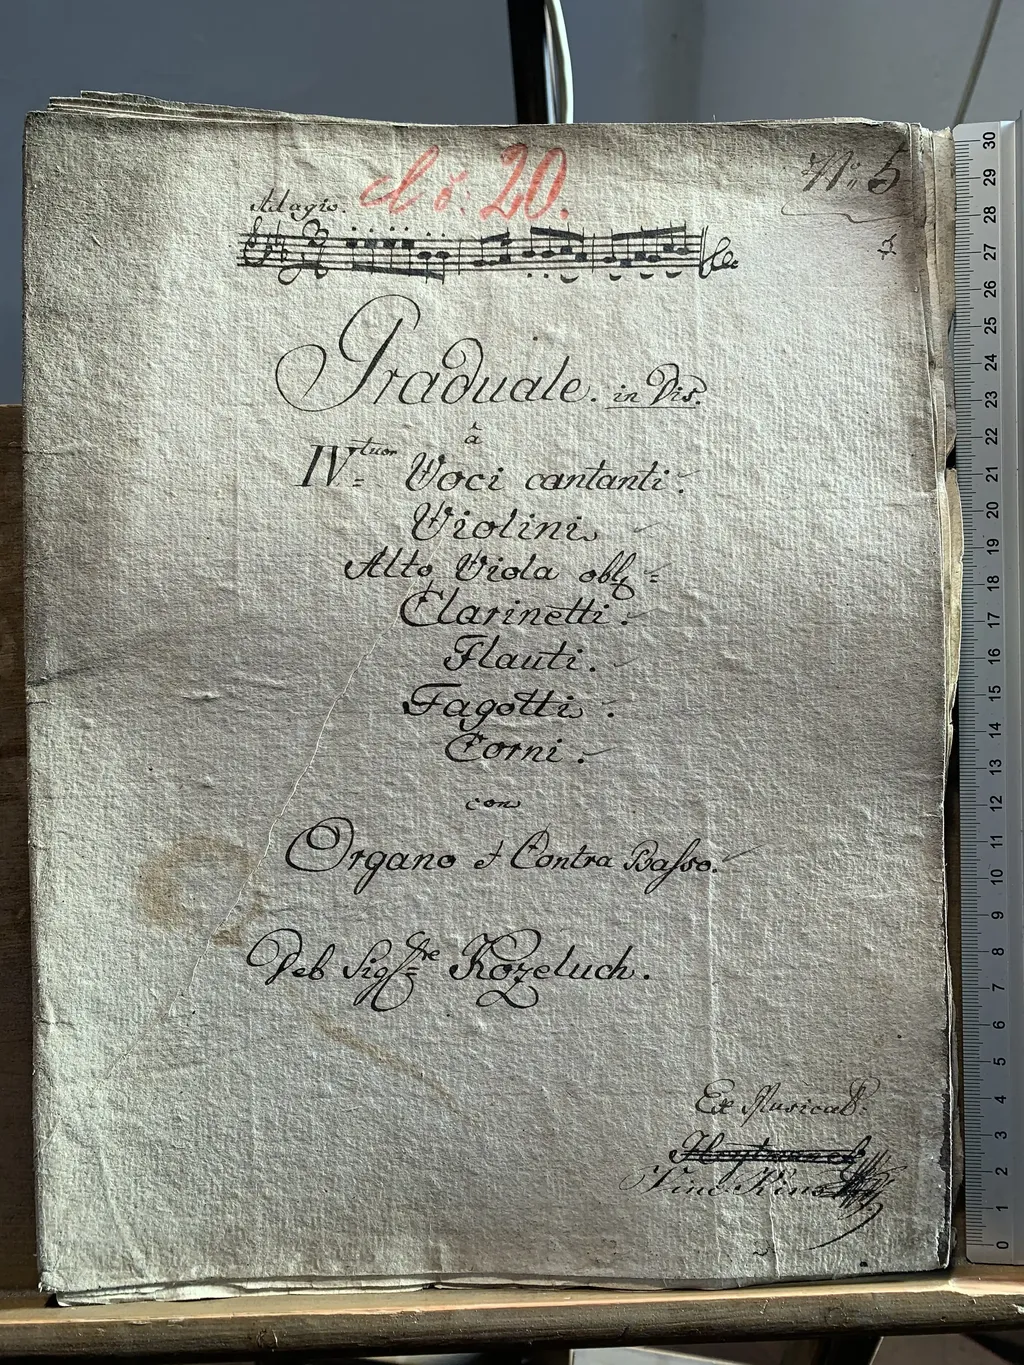 Čs: 20.
No. 5
Adagio.
Graduale. in Dis.
à
IV tuor Voci cantanti.
Violini
Alto Viola oblg
Clarinetti.
Flauti.
Fagotti.
Corni.
con
Organo et Contra Basso.
Del Sigre Kozeluch.
Ex Musical:
30
29
28
27
26
25
24
23
22
21
20
19
18
17
16
15
14
13
12
11
10
9
8
7
6
5
4
3
2
1
0